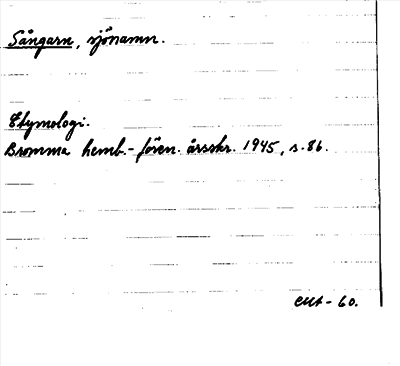 Sångarn, sjönamn.
Etymologi.
Bromma hemb.-fören. årsskr. 1945, s. 86.
-60.